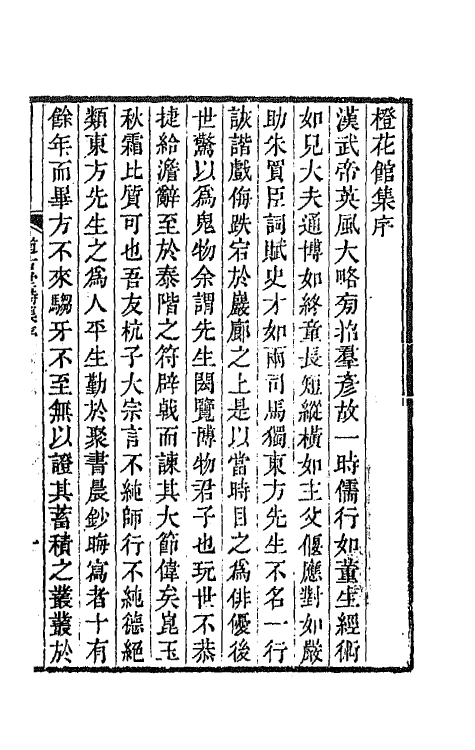 橙花館集序
漢武帝英風大略旁招羣彥故一時儒行如董生經術
如兒大夫通博如終童長短縱橫如主父偃應對如嚴
助朱買臣詞賦史才如兩司馬獨東方先生不名一行
詼諧戲侮跌宕於巖廊之上是以當時目之爲俳優後
世驚以爲鬼物余謂先生閎覽博物君子也玩世不恭
捷給澹辭至於泰階之符辟戟而諫其大節偉矣崑玉
秋霜比質可也吾友杭子大宗言不純師行不純德絕
類東方先生之爲人平生勤於聚書晨鈔晦寫者十有
餘年而畢方不來騶牙不至無以證其蓄積之叢叢於
道古堂詩集序
一